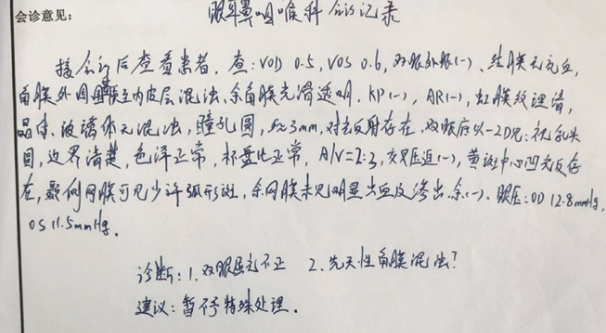 会诊意见：
眼耳鼻咽喉科会诊记录
接会诊后查看患者，查：VOD 0.5，VOS 0.6，双眼外眼(-)、结膜无充血，
角膜外周内皮层混浊，余角膜光滑透明，KP(-)，AR(-)，虹膜纹理清，
晶体、玻璃体无混浊，瞳孔圆，f≈3mm，对光反射存在，双眼底以-2D见：视乳头
圆，边界清楚，色泽正常，杯盘比正常，A/V=2:3，交叉压迫(-)，黄斑中心凹光反存
在，颞侧网膜可见少许弧形斑，余网膜未见明显出血及渗出，余(-)．眼压：OD 12.8mmHg，
OS 11.5mmHg。
诊断：1.双眼屈光不正 2.先天性角膜混浊？
建议：暂不予特殊处理．